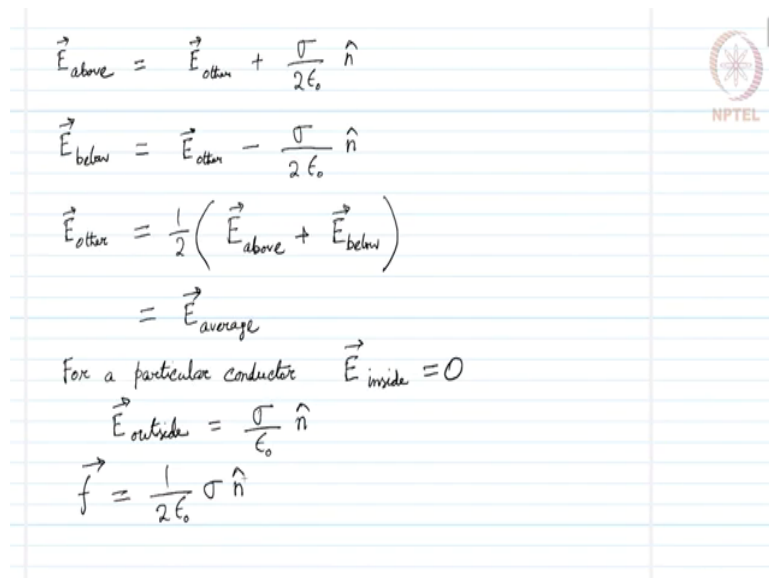 E⃗ above = E⃗ other + σ/2ϵ₀ n̂
NPTEL
E⃗ below = E⃗ other - σ/2ϵ₀ n̂
E⃗ other = 1/2 ( E⃗ above + E⃗ below )
= E⃗ average
For a particular conductor E⃗ inside = 0
E⃗ outside = σ/ϵ₀ n̂
f⃗ = 1/2ϵ₀ σ n̂